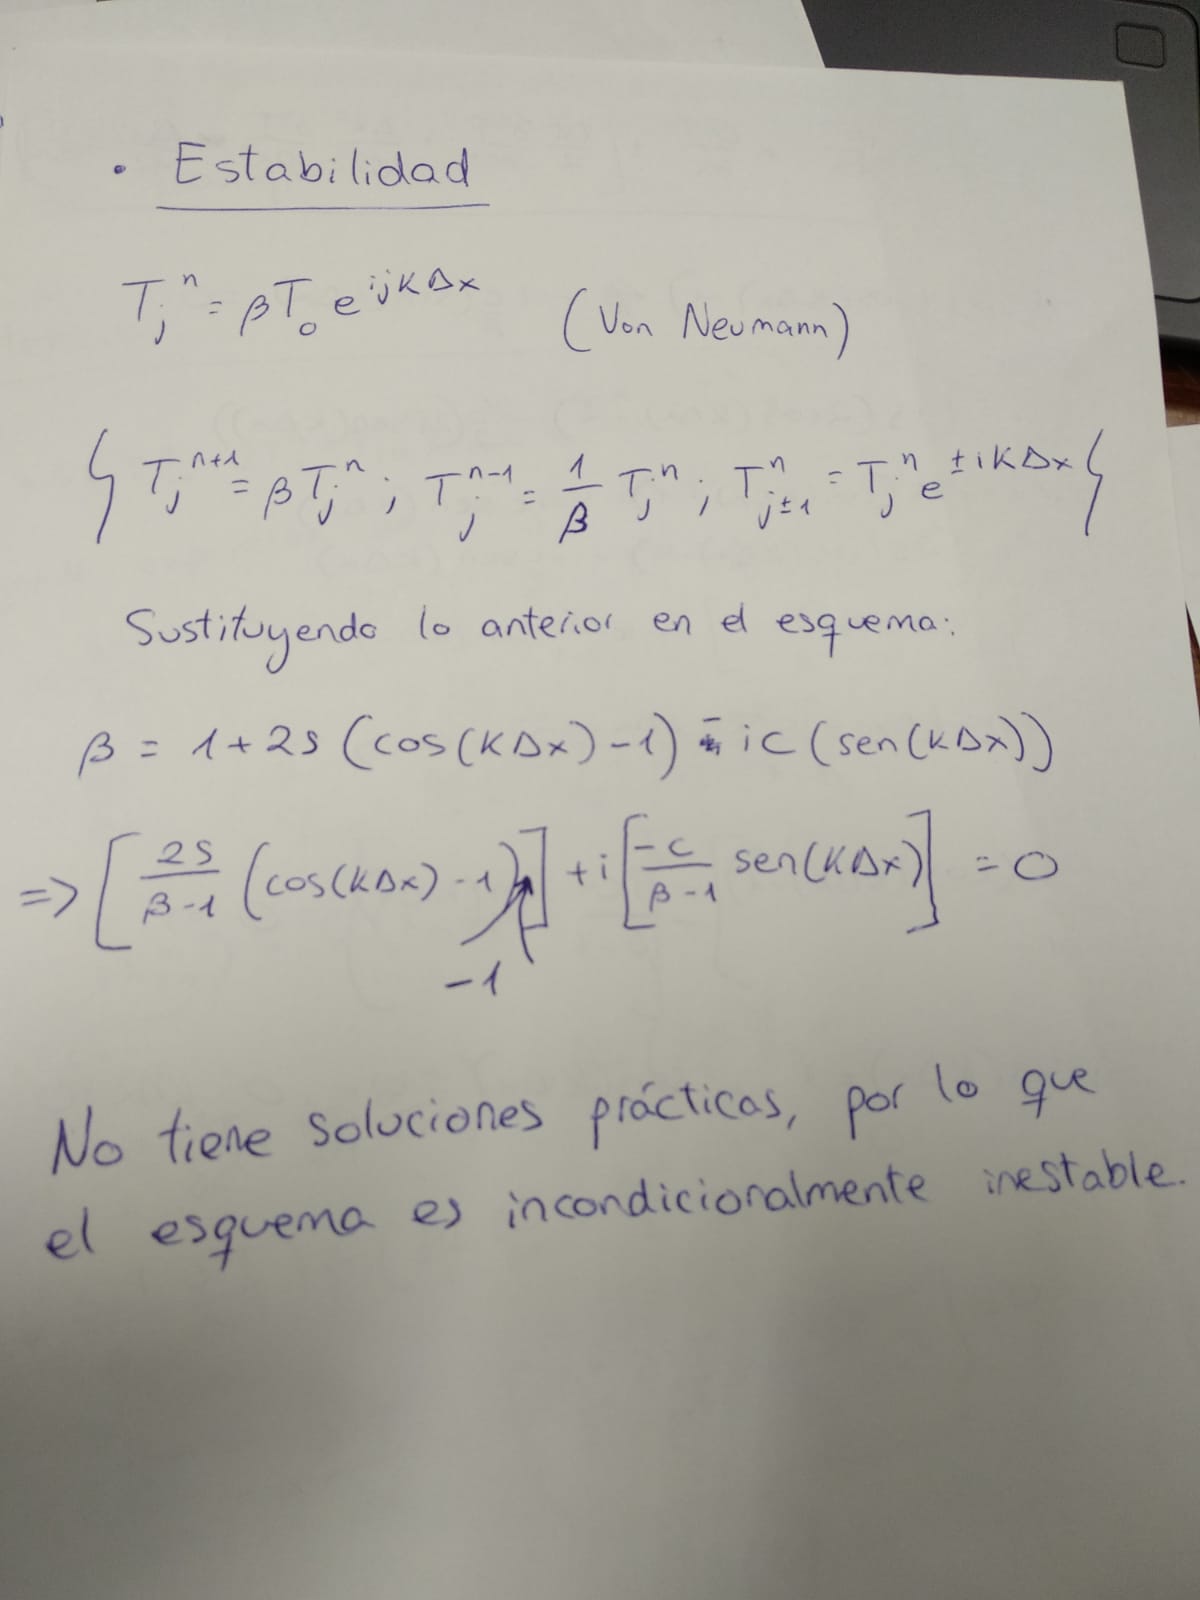 · Estabilidad
T_j^n = βT_0 e^{ijKΔx} (Von Neumann)
{ T_j^{n+1} = βT_j^n ; T_j^{n-1} = 1/β T_j^n ; T_{j±1}^n = T_j^n e^{±iKΔx} }
Sustituyendo lo anterior en el esquema:
β = 1 + 2s (cos(KΔx) - 1) - ic (sen(KΔx))
=> [ 2s/(β-1) (cos(KΔx) - 1) ] + i [ -c/(β-1) sen(KΔx) ] = 0
-1
No tiene soluciones prácticas, por lo que
el esquema es incondicionalmente inestable.